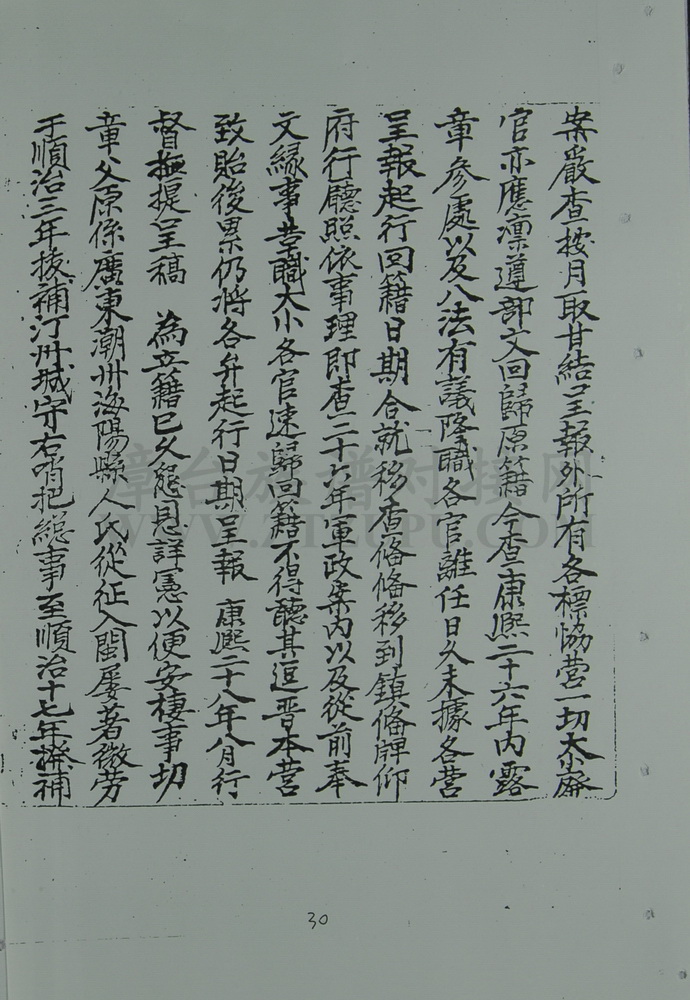 案嚴查按月取甘結呈報外所有各標協營一切大小廢
官亦應凛遵部文回歸原籍今查康熙二十六年內露
章參處以及八法有議降職各官離任日久未據各營
呈報起行回籍日期合就移查俻俻移到鎮俻牌仰
府行廳照依事理即查二十六年軍政案內以及從前奉
文緣事苦職大小各官速歸回籍不得聽其逗晋本營
致貽後累仍將各弁起行日期呈報 康熙二十八年八月行
督撫提呈稿 為立籍已久懇恩詳憲以便安棲事切
章父原係廣東潮州海陽縣人氏從征入閩屡著微劳
于順治三年拔補汀州城守右哨把總事至順治十七年撥補
30
漳台族谱对接网
WWW.ZTZUPU.COM